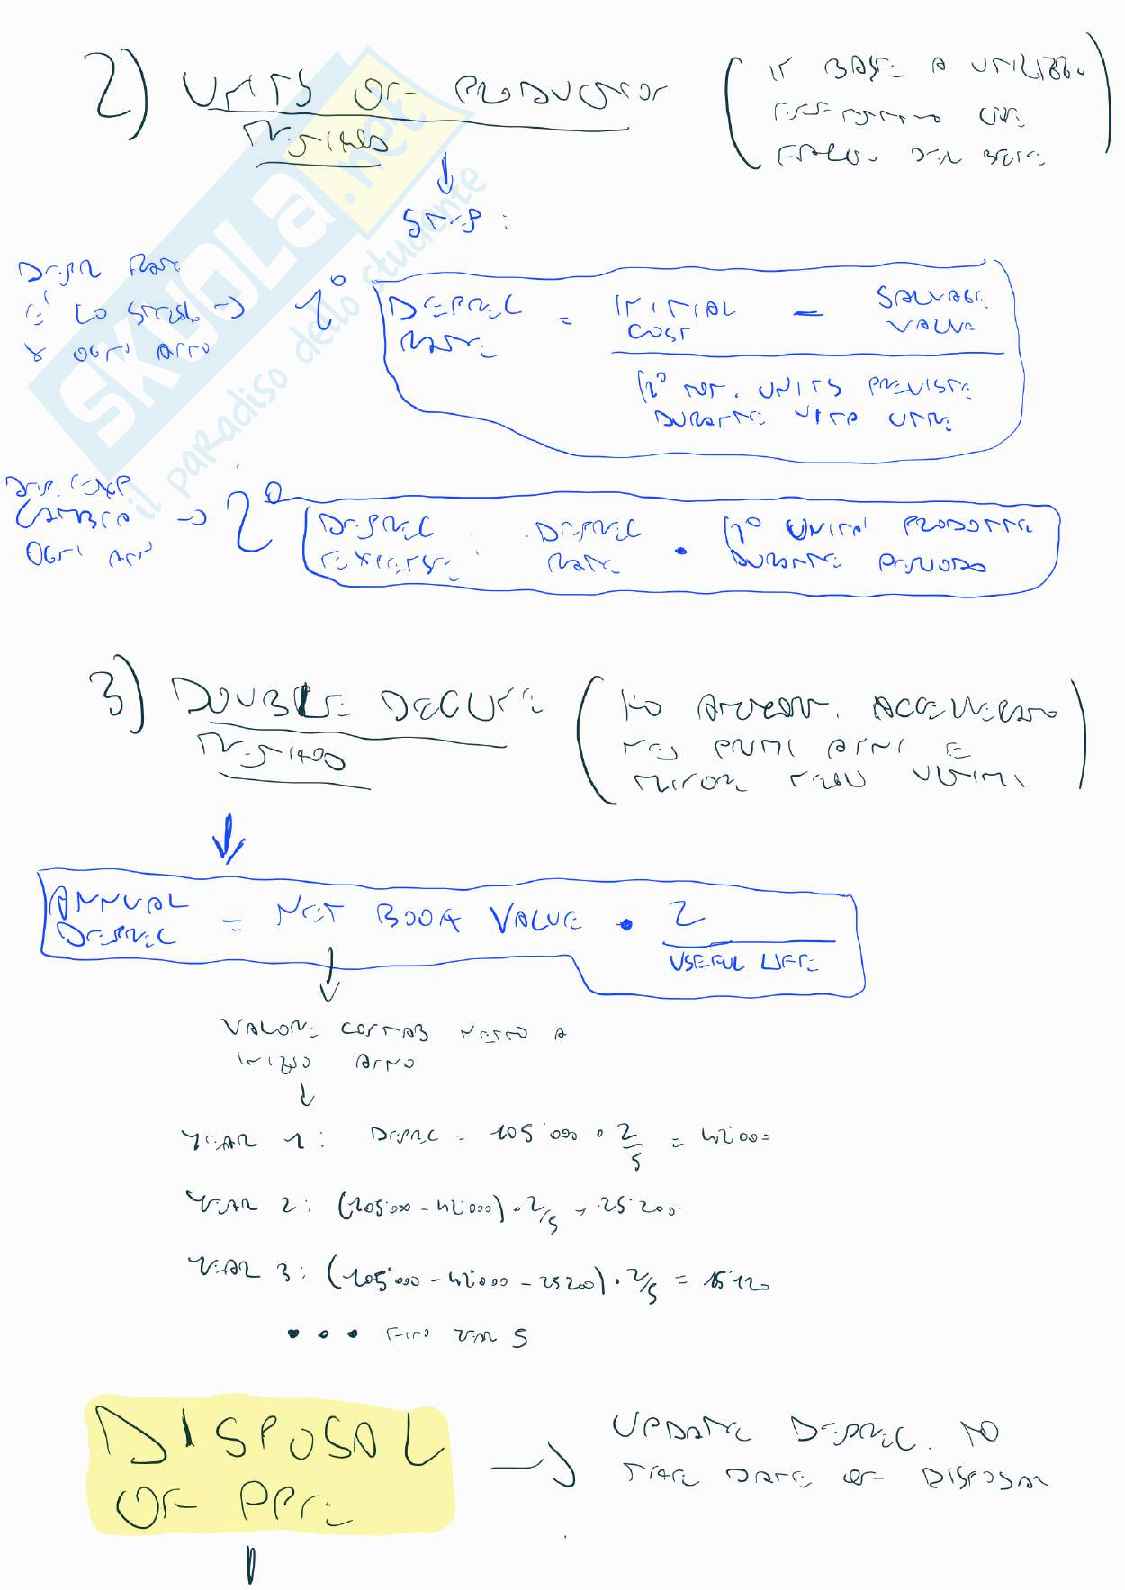 2) UNITS OF PRODUCTION
METHOD
(IN BASE A UTILIZZO
EFFETTIVO CHE
FACCIO DEL BENE)
STEP:
DEPR RATE
E' LO STESSO →
X OGNI ANNO
1° DEPREC RATE = INITIAL COST - SALVAGE VALUE
N° TOT. UNITS PREVISTE
DURANTE VITA UTILE
DEP. EXP
CAMBIA →
OGNI ANN
2° DEPREC EXPENSE = DEPREC RATE · N° UNITA' PRODOTTE
DURANTE PERIODO
3) DOUBLE DECLINE
METHOD
(HO AMMORT. ACCELLERATO
NEI PRIMI ANNI E
MINOR NEGLI ULTIMI)
ANNUAL DEPREC = NET BOOK VALUE · 2
USEFUL LIFE
VALORE CONTAB NETTO A
INIZIO ANNO
YEAR 1: DEPREC = 105'000 · 2/5 = 42'000
YEAR 2: (105'000 - 42'000) · 2/5 = 25'200
YEAR 3: (105'000 - 42'000 - 25200) · 2/5 = 15'120
• • • FINO YEAR 5
DISPOSAL → UPDATE DEPREC. TO
OF PPE THE DATE OF DISPOSAL
SKUOLA.net
il paradiso dello studente